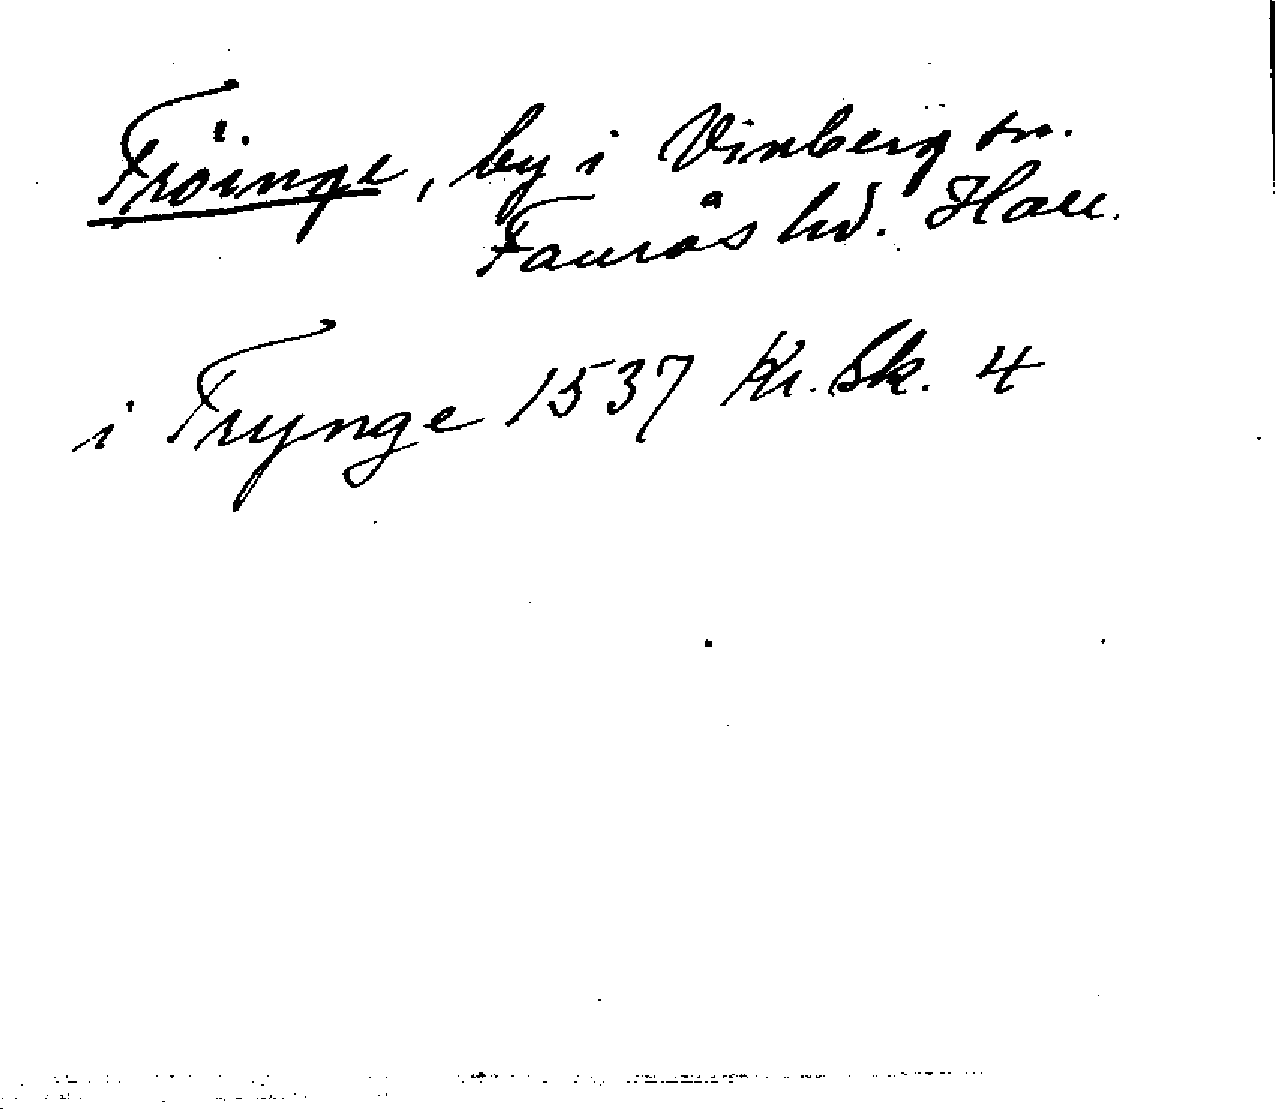 Fröinge, by i Vinberg sn.
Faurås hd. Hall.
i Frynge 1537 Kr. Sk. 4